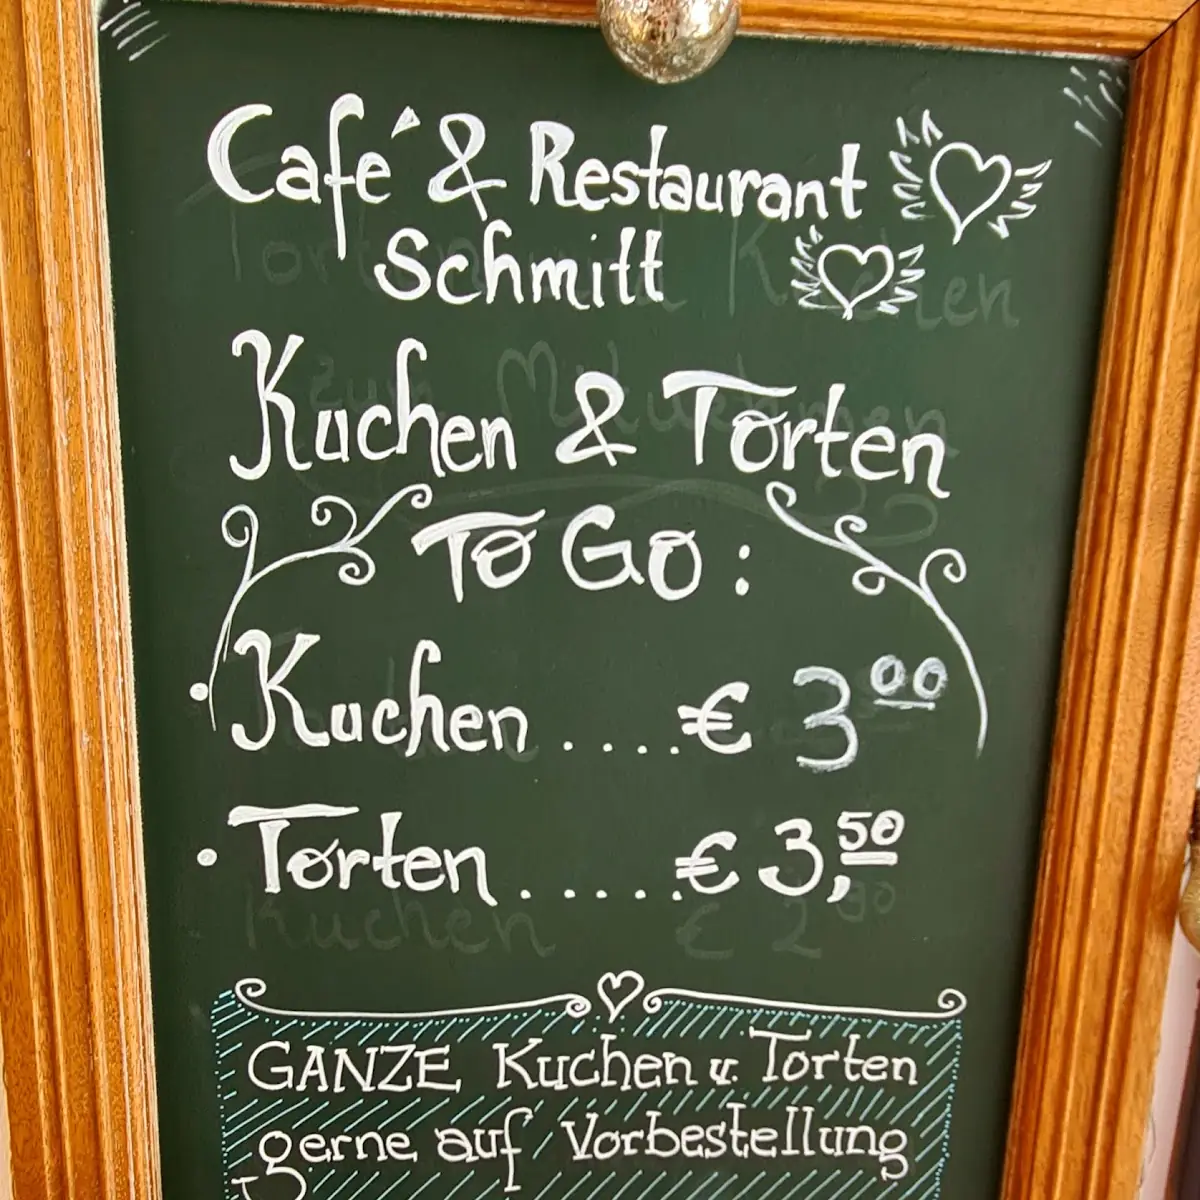 Café & Restaurant
Schmitt
Kuchen & Torten
To Go :
• Kuchen ....€ 3 00
• Torten .....€ 3,50
Kuchen € 2 80
GANZE Kuchen u. Torten
gerne auf Vorbestellung